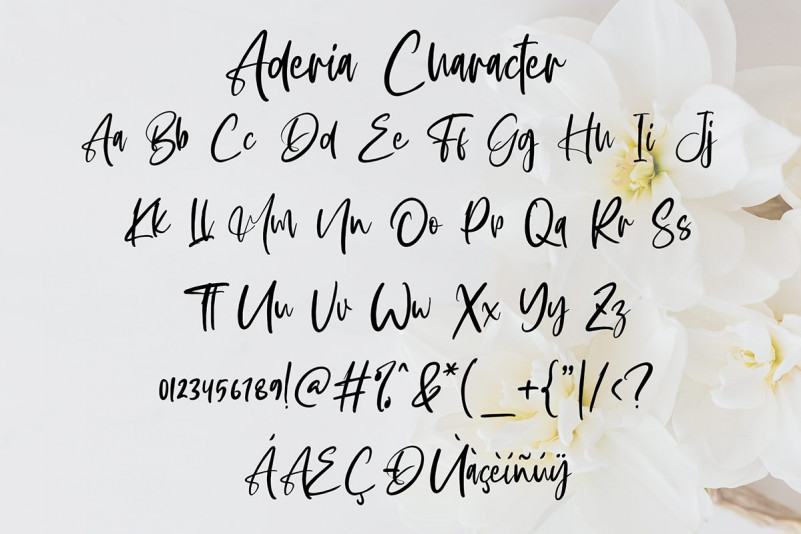 Aderia Character
Aa Bb Cc Dd Ee Ff Gg Hh Ii Jj
Kk Ll Mm Nn Oo Pp Qq Rr Ss
Tt Uu Vv Ww Xx Yy Zz
0123456789!@#%^&*(_+{"|/<?
ÁÆÇÐÙàçèíñúÿ